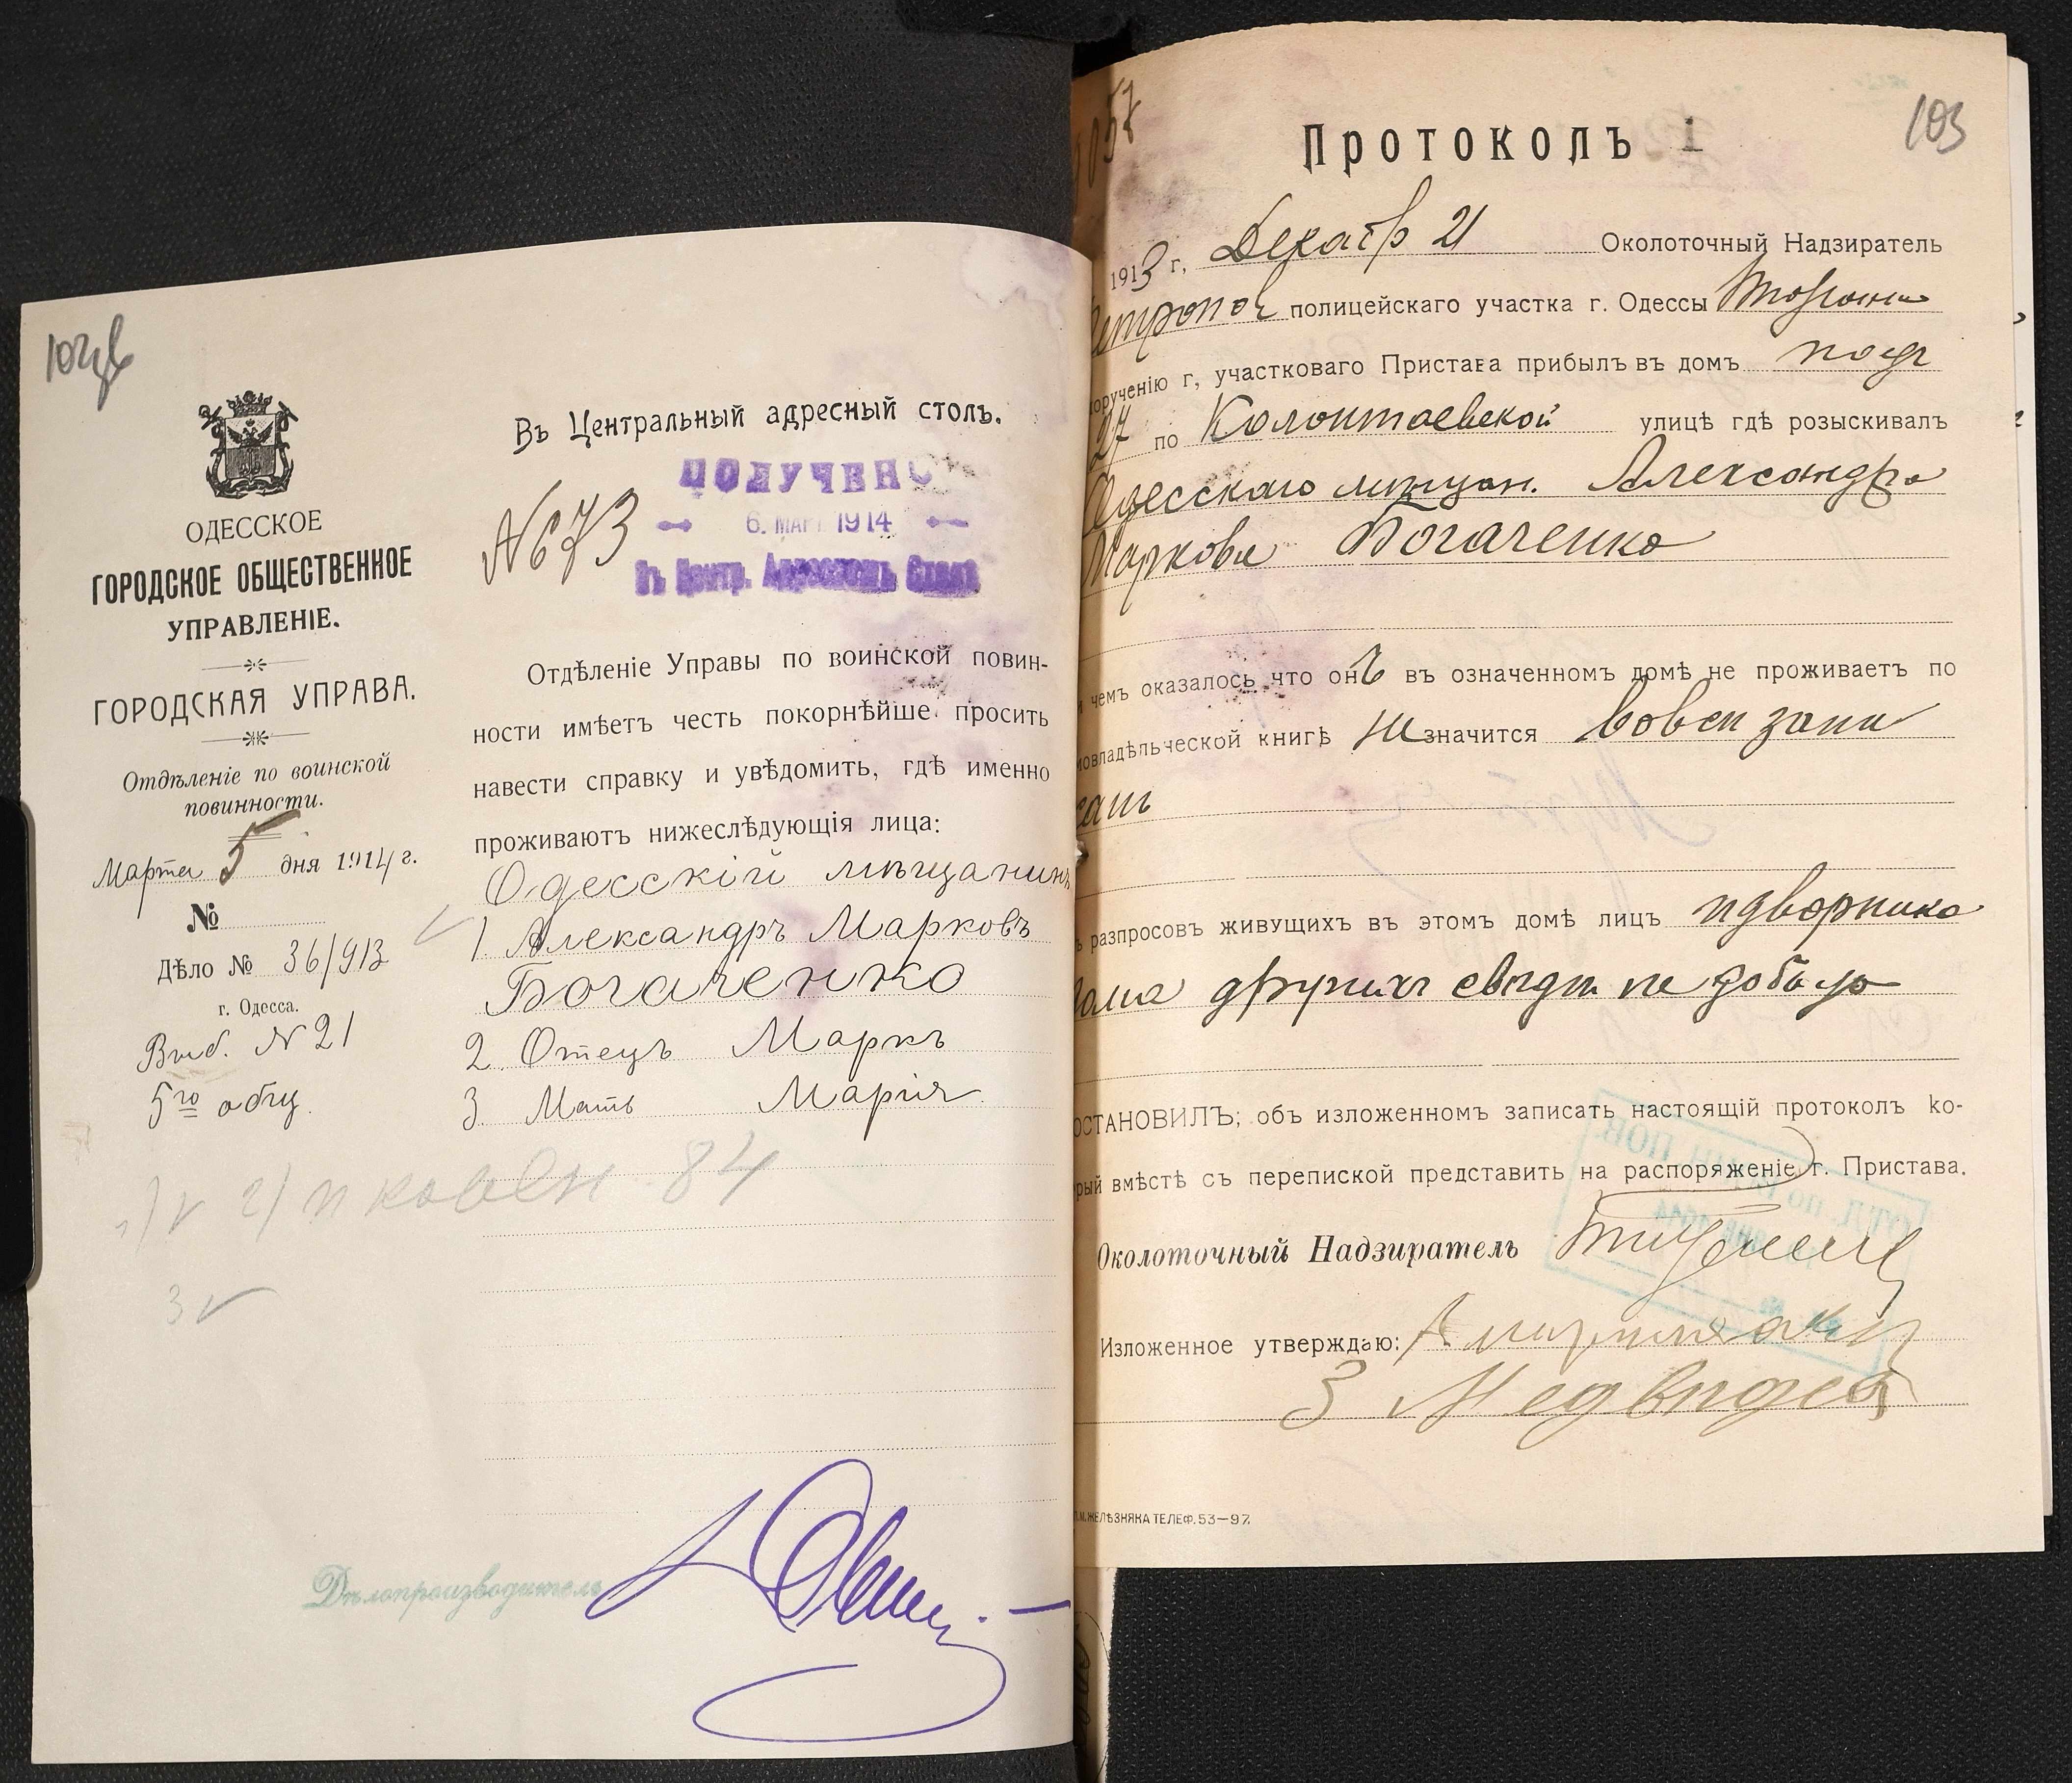 ОДЕССКОЕ
ГОРОДСКОЕ ОБЩЕСТВЕННОЕ
УПРАВЛЕНІЕ.
ГОРОДСКАЯ УПРАВА.
Отдѣленіе по воинской
повинности.
Марта 5 дня 1914 г.
№
Дѣло № 36/913
г. Одесса.
№ 21
5го общ.
Въ Центральный адресный столъ.
№673
ПОЛУЧЕНО
6. МАР 1914
Въ Центр. Адресномъ Столѣ
Отдѣленіе Управы по воинской повин-
ности имѣетъ честь покорнѣйше просить
навести справку и увѣдомить, гдѣ именно
проживаютъ нижеслѣдующія лица:
Одесскій мѣщанинъ
1. Александръ Марковъ
Богаченко
2. Отецъ Маркъ
3. Мать Марія
84
3
Дѣлопроизводитель
103
Протоколъ
1913 г, Декабр 21 Околоточный Надзиратель
Петропов полицейскаго участка г. Одессы
оручению г, участковаго Пристава прибылъ въ домъ подъ
27 по Колонтаевской улицѣ гдѣ розыскивалъ
Одесскаго мѣщан. Александра
Маркова Богаченко
и чемъ оказалось что онъ въ означенномъ домѣ не проживаетъ по
мовладѣльческой книгѣ не значится вовсе запи
сан
ъ разпросовъ живущихъ въ этомъ домѣ лицъ и дворника
дома других свѣдѣн не добыло
ОСТАНОВИЛЪ; объ изложенномъ записать настоящій протоколъ ко-
рый вмѣстѣ съ перепиской представить на распоряженіе г. Пристава.
Околоточный Надзиратель
Изложенное утверждаю:
Медведев
П.М.ЖЕЛѢЗНЯКА ТЕЛЕФ. 53—97